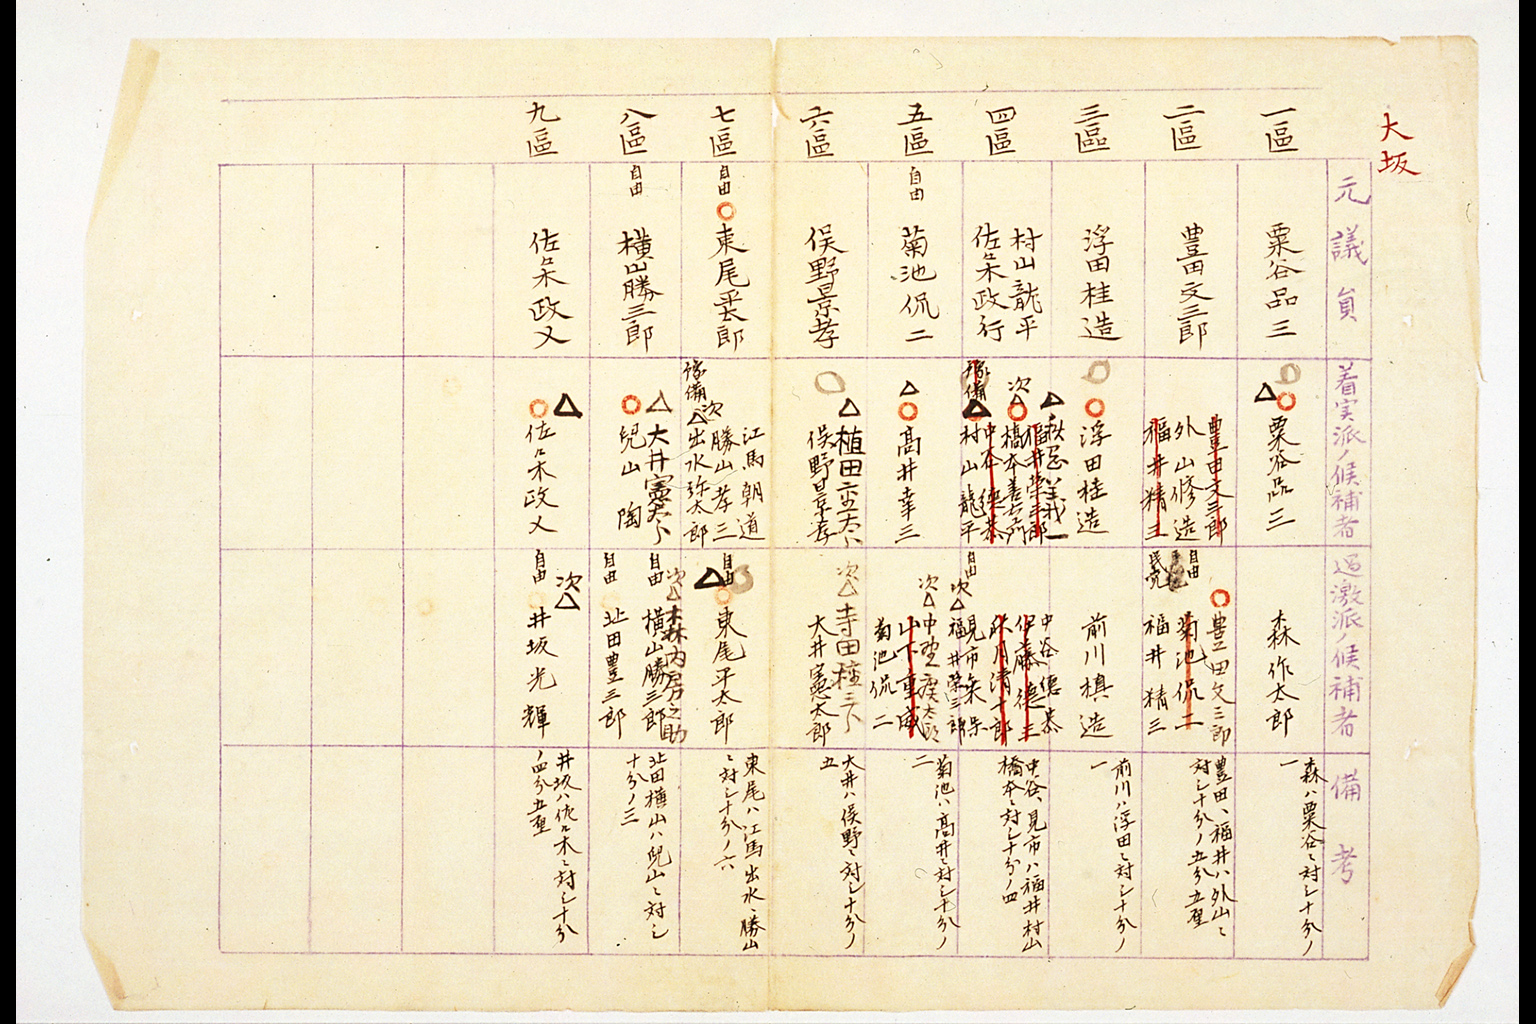 大坂
元議員
着実派ノ候補者
過激派ノ候補者
備考
一區
粟谷品三
粟谷品三
森作太郎
森ハ粟谷ニ対シ十分ノ
一
二區
豊田文三郎
豊田文三郎
外山修造
福井精三
自由
豊田文三郎
菊池侃二
民党
福井精三
豊田、福井ハ外山ニ
対シ十分ノ五分五厘
三區
浮田桂造
浮田桂造
前川槙造
前川ハ浮田ニ対シ十分ノ
一
四區
村山龍平
佐々木政行
秋月
福井榮三郎
次
橋本善右衛門
中谷徳恭
予備
村山龍平
中谷徳恭
伊藤徳三
秋月清十郎
自由
次
福井榮三郎
中谷、見市ハ福井村山
橋本ニ対シ十分ノ四
五區
自由
菊池侃二
高井幸三
次
山下重威
菊池侃二
菊池ハ高井ニ対シ十分ノ
二
六區
俣野景孝
植田
俣野景孝
次
寺田
大井憲太郎
大井ハ俣野ニ対シ十分ノ
五
七區
自由
東尾平太郎
江馬朝道
次
勝山孝三
予備
出水弥太郎
自由
東尾平太郎
東尾ハ江馬出水、勝山
ニ対シ十分ノ六
八區
自由
横山勝三郎
大井憲太郎
児山陶
次
森内房之助
自由
横山勝三郎
自由
北田豊三郎
北田横山ハ児山ニ対シ
十分ノ三
九區
佐々木政乂
佐々木政乂
次
自由
井坂光輝
井坂ハ佐々木ニ対シ十分
ノ四分五厘